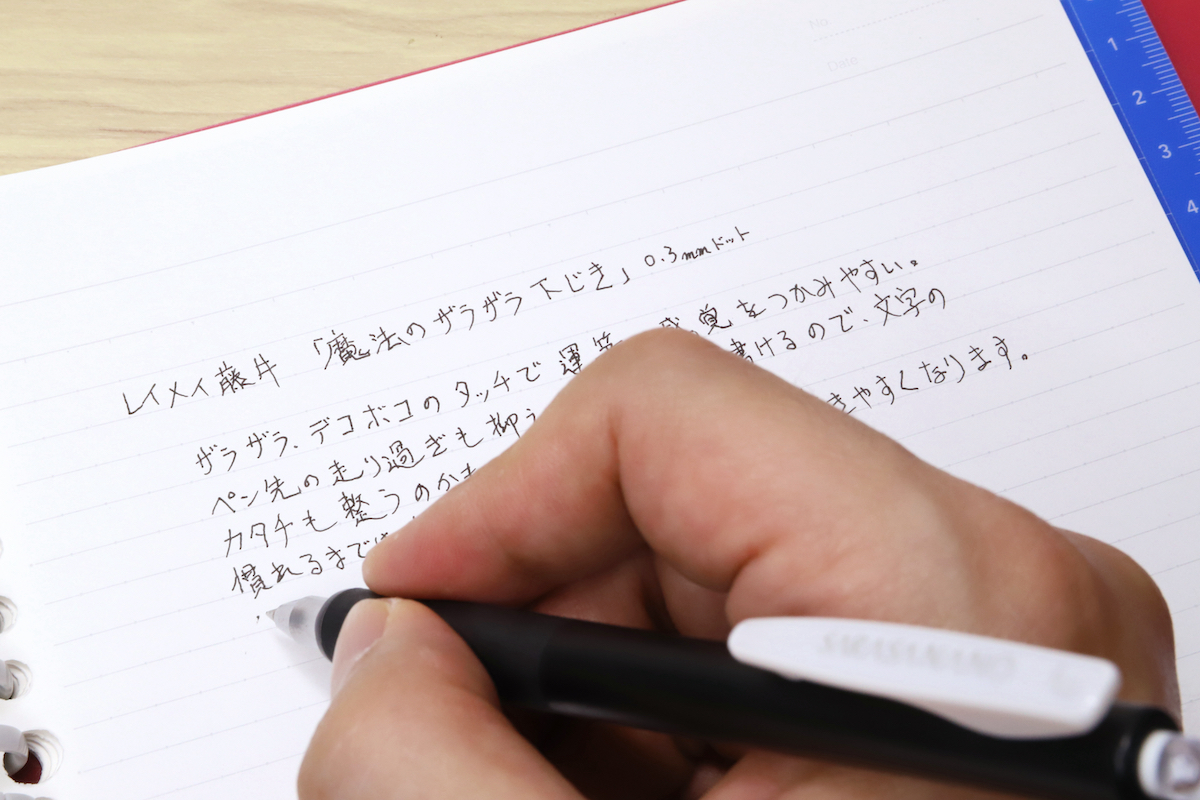 No.
Date
1
2
3
4
レイメイ藤井 「魔法のザラザラ下じき」 0.3mmドット
ザラザラ、デコボコのタッチで運筆 感覚をつかみやすい。
ペン先の走り過ぎも抑え 書けるので、文字の
カタチも整うのか きやすくなります。
慣れるまでは